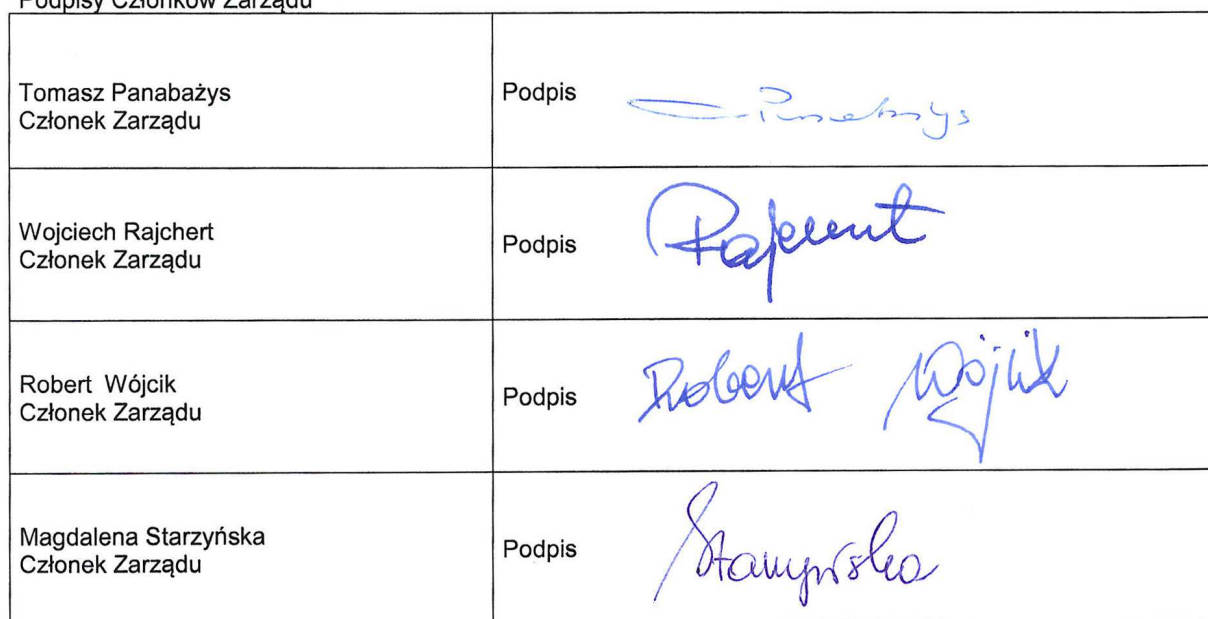 Podpisy Członków Zarządu
Tomasz Panabażys
Członek Zarządu
Podpis
Wojciech Rajchert
Członek Zarządu
Podpis
Robert Wójcik
Członek Zarządu
Podpis
Robert Wójcik
Magdalena Starzyńska
Członek Zarządu
Podpis
Starzyńska